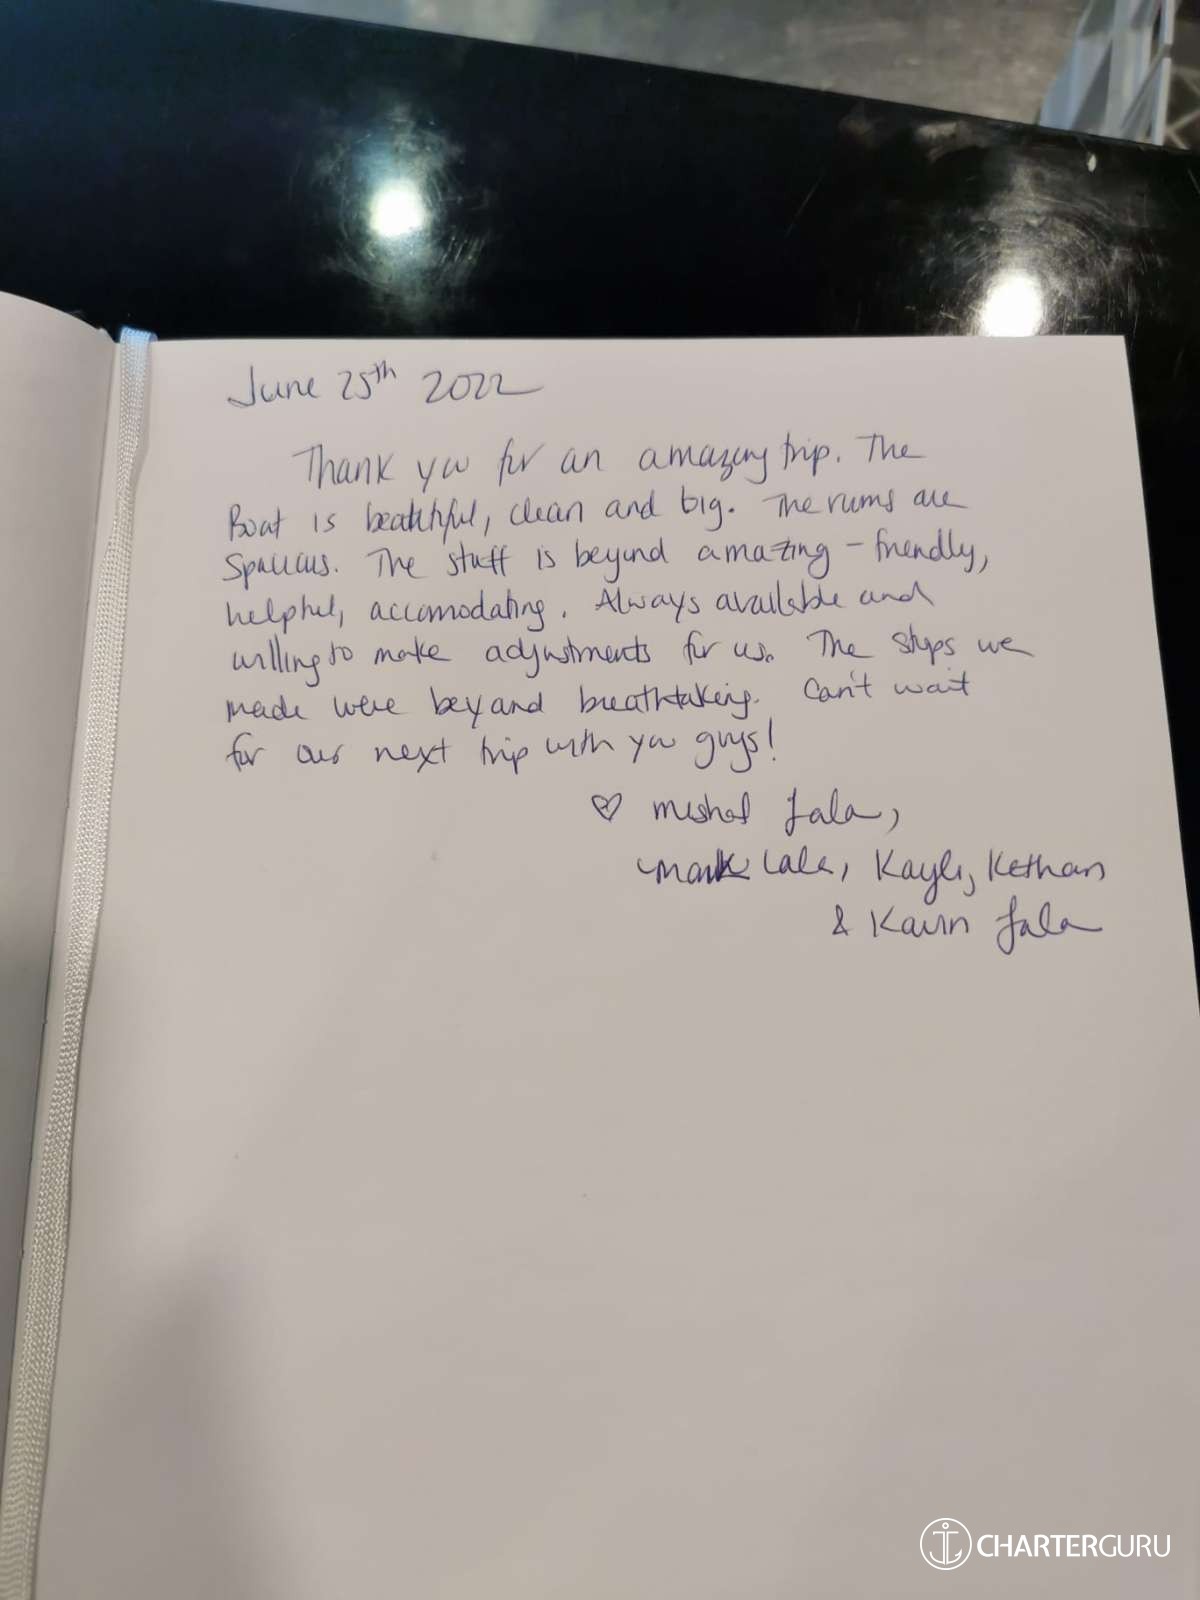 June 25th 2022
Thank you for an amazing trip. The
Boat is beautiful, clean and big. The rooms are
Spacious. The staff is beyond amazing - friendly,
helpful, accomodating. Always available and
willing to make adjustments for us. The stops we
made were beyond breathtaking. Can't wait
for our next trip with you guys!
♡ Lala,
Mark Lala, Kayli, Kethan
& Lala
CHARTERGURU